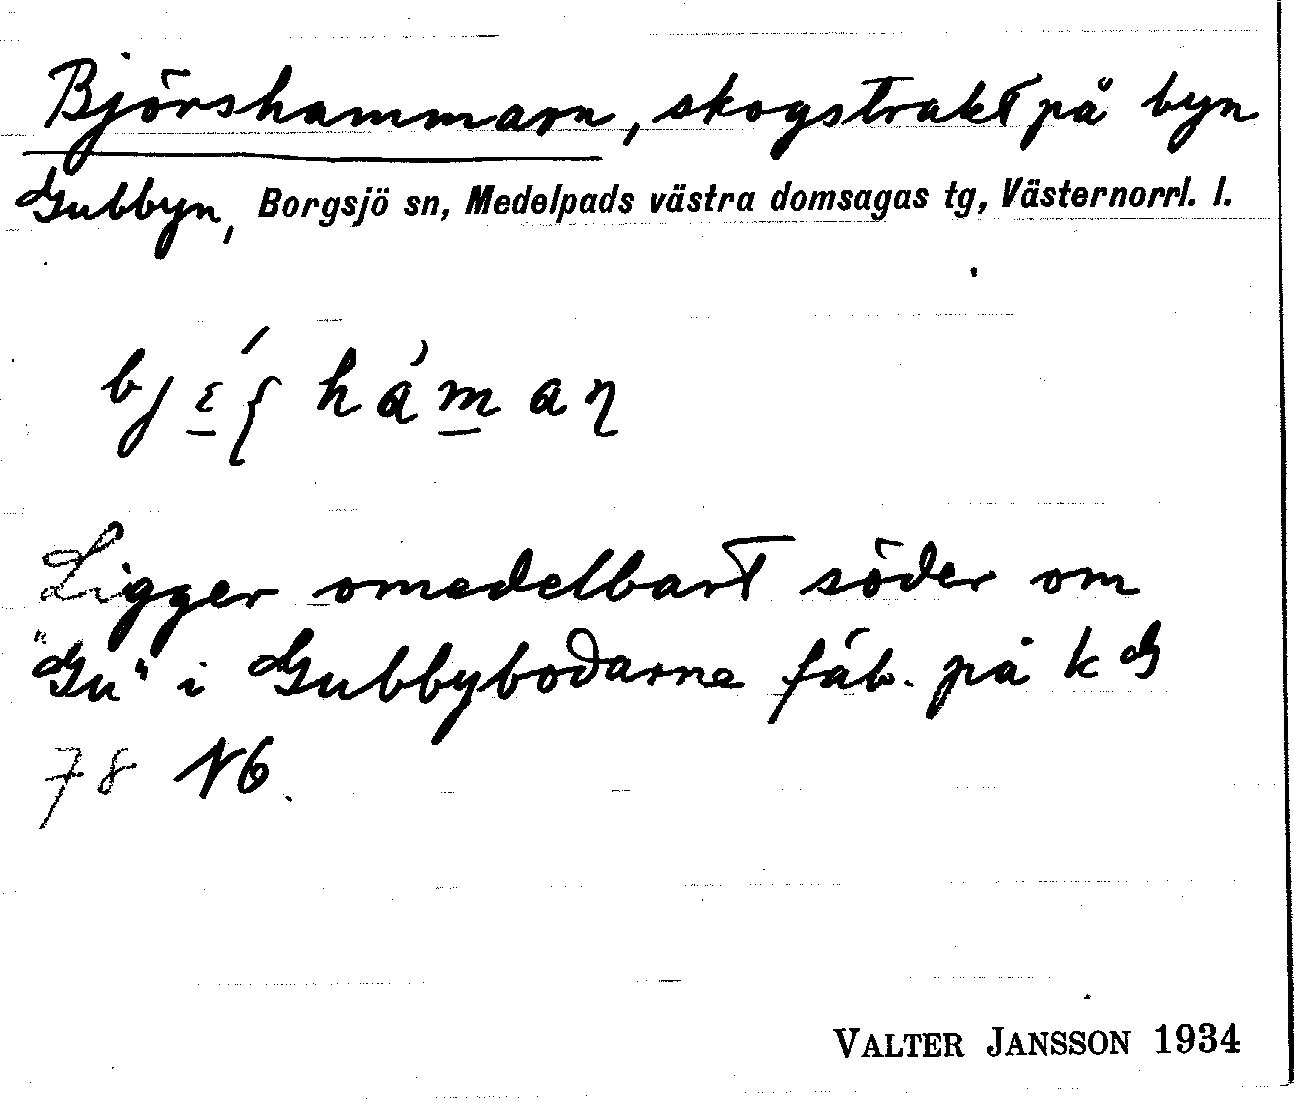 Björshammarn, skogstrakt på byn
Gubbyn, Borgsjö sn, Medelpads västra domsagas tg, Västernorrl. l.
Ligger omedelbart söder om
"Gu" i Gubbybodarne fäb. på k G
78 N6.
VALTER JANSSON 1934